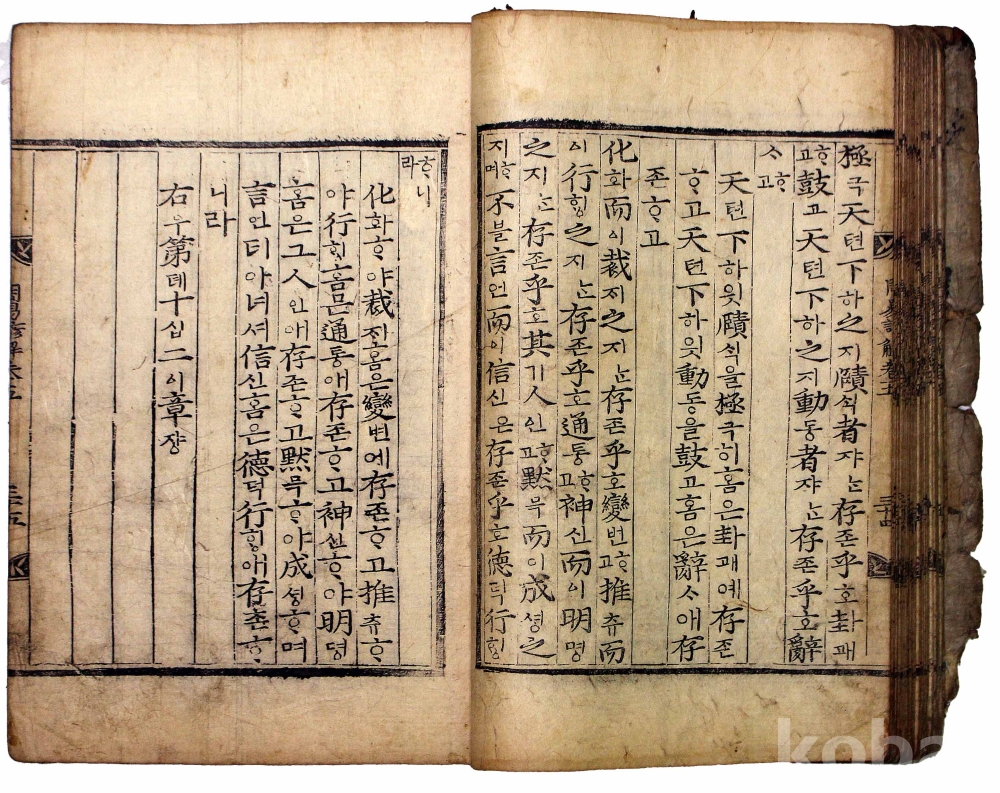 極극天텬下하之지賾ᄉᆡᆨ者쟈ᄂᆞᆫ存존乎호卦괘
ᄒᆞ고鼓고天텬下하之지動동者쟈ᄂᆞᆫ存존乎호辭
ᄉᆞᄒᆞ고
天텬下하읫賾ᄉᆡᆨ을極극히홈은卦괘예存존
ᄒᆞ고天텬下하읫動동을鼓고홈은辭ᄉᆞ애存
존ᄒᆞ고
化화而이裁ᄌᆡ之지ᄂᆞᆫ存존乎호變변ᄒᆞ고推츄而
이行ᄒᆡᆼ之지ᄂᆞᆫ存존乎호通통ᄒᆞ고神신而이明명
之지ᄂᆞᆫ存존乎호其기人인ᄒᆞ고默믁而이成셩之
지ᄒᆞ며不블言언而이信신은存존乎호德덕行ᄒᆡᆼ
ᄒᆞ니라
化화ᄒᆞ야裁ᄌᆡ홈은變변에存존ᄒᆞ고推츄ᄒᆞ
야行ᄒᆡᆼ홈은通통애存존ᄒᆞ고神신ᄒᆞ야明명
홈은그人인애存존ᄒᆞ고默믁ᄒᆞ야成셩ᄒᆞ며
言언티아녀셔信신홈은德덕行ᄒᆡᆼ애存존ᄒᆞ
니라
右우第뎨十십二이章쟝
koba